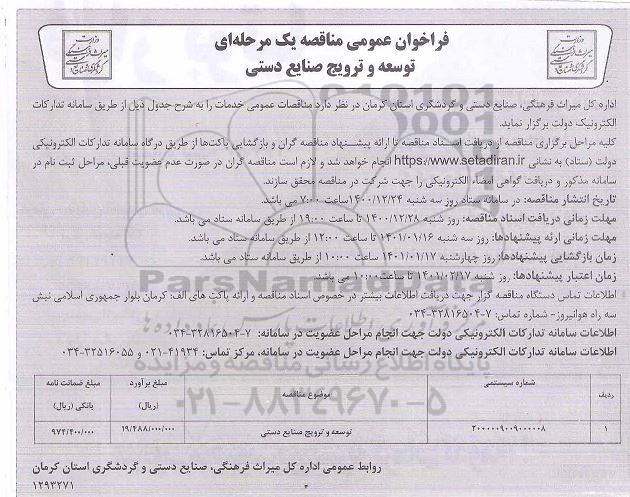 فراخوان عمومی مناقصه یک مرحله‌ای
توسعه و ترویج صنایع دستی
اداره کل میراث فرهنگی، صنایع دستی و گردشگری استان کرمان در نظر دارد مناقصات عمومی خدمات را به شرح جدول ذیل از طریق سامانه تدارکات
الکترونیک دولت برگزار نماید.
کلیه مراحل برگزاری مناقصه از دریافت اسناد مناقصه تا ارائه پیشنهاد مناقصه گران و بازگشایی پاکت‌ها از طریق درگاه سامانه تدارکات الکترونیکی
دولت (ستاد) به نشانی https://www.setadiran.ir انجام خواهد شد و لازم است مناقصه گران در صورت عدم عضویت قبلی، مراحل ثبت نام در
سامانه مذکور و دریافت گواهی امضاء الکترونیکی را جهت شرکت در مناقصه محقق سازند.
تاریخ انتشار مناقصه: در سامانه ستاد روز سه شنبه ۱۴۰۰/۱۲/۲۴ ساعت ۷:۰۰ می باشد.
مهلت زمانی دریافت اسناد مناقصه: روز شنبه ۱۴۰۰/۱۲/۲۸ تا ساعت ۱۹:۰۰ از طریق سامانه ستاد می باشد.
مهلت زمانی ارئه پیشنهادها: روز سه شنبه ۱۴۰۱/۰۱/۱۶ تا ساعت ۱۲:۰۰ از طریق سامانه ستاد می باشد.
زمان بازگشایی پیشنهادها: روز چهارشنبه ۱۴۰۱/۰۱/۱۷ ساعت ۱۰:۰۰ از طریق سامانه ستاد می باشد.
زمان اعتبار پیشنهادها: روز شنبه ۱۴۰۱/۰۲/۱۷ تا ساعت ۱۰:۰۰ می باشد.
اطلاعات تماس دستگاه مناقصه گزار جهت دریافت اطلاعات بیشتر در خصوص اسناد مناقصه و ارائه پاکت های الف: کرمان بلوار جمهوری اسلامی نبش
سه راه هوانیروز- شماره تماس: ۷-۳۲۸۱۶۵۰۴-۰۳۴
اطلاعات سامانه تدارکات الکترونیکی دولت جهت انجام مراحل عضویت در سامانه: ۷-۳۲۸۱۶۵۰۴-۰۳۴
اطلاعات سامانه تدارکات الکترونیکی دولت جهت انجام مراحل عضویت در سامانه، مرکز تماس: ۴۱۹۳۴-۰۲۱ و ۳۲۵۱۶۰۵۵-۰۳۴
ردیف شماره سیستمی موضوع مناقصه مبلغ برآورد (ریال) مبلغ ضمانت نامه بانکی (ریال)
۱ ۲۰۰۰۰۰۹۰۰۹۰۰۰۰۰۸ توسعه و ترویج صنایع دستی ۱۹/۴۸۸/۰۰۰/۰۰۰ ۹۷۴/۴۰۰/۰۰۰
روابط عمومی اداره کل میراث فرهنگی، صنایع دستی و گردشگری استان کرمان
۱۲۹۳۲۷۱
ParsNamadData
پایگاه اطلاع رسانی مناقصه و مزایده
۰۲۱-۸۸۳۴۹۶۷۰-۵